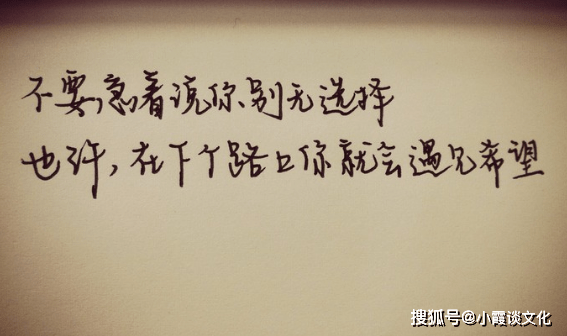 不要急着说你别无选择
也许，在下个路口你就会遇见希望
搜狐号@小霞谈文化